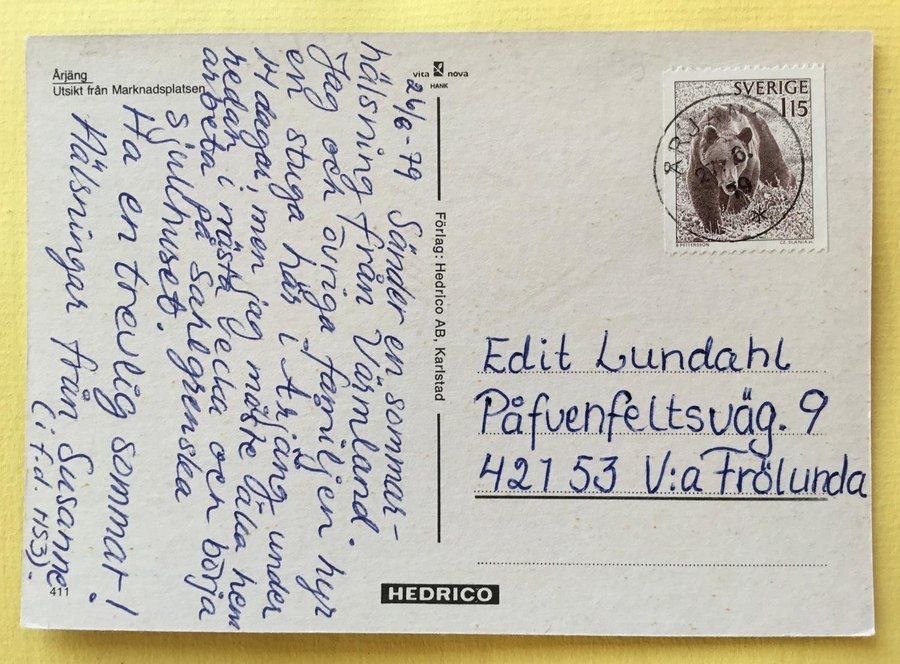 Årjäng
Utsikt från Marknadsplatsen
vita nova
HANK
26/6-79 Sänder en sommar-
hälsning från Värmland.
Jag och övriga familjen hyr
en stuga här i Årjäng under
14 dagar, men jag måste åka hem
redan i nästa vecka och börja
arbeta på Sahlgrenska
sjukhuset.
Ha en trevlig sommar!
Hälsningar från Susanne.
(i f.d. HS3).
411
Förlag: Hedrico AB, Karlstad
HEDRICO
SVERIGE
115
ÅRJ
79
CZ.SLANIA sc.
Edit Lundahl
Påfvenfeltsväg. 9
421 53 V:a Frölunda